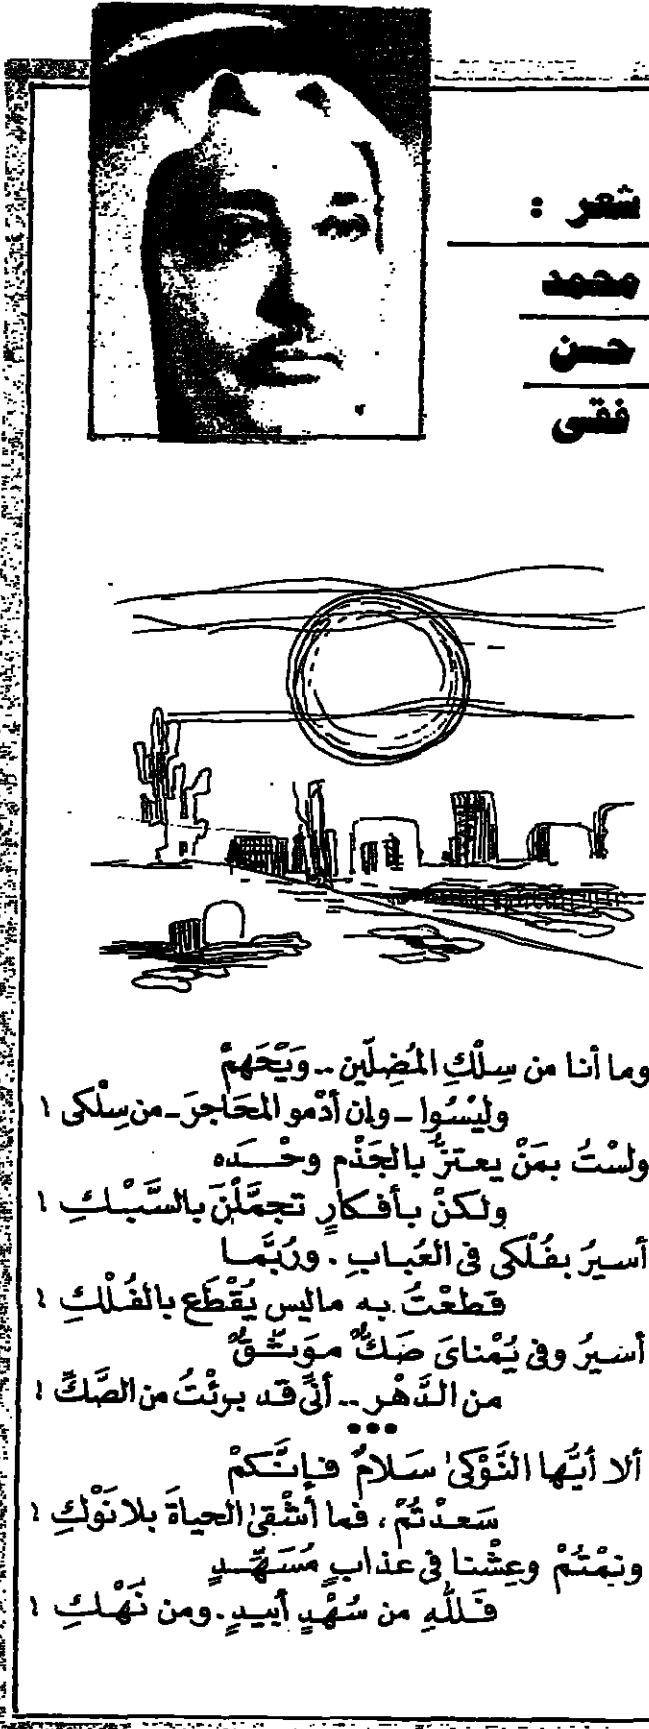 شعر :
محمد
حسن
فقى
وما أنا من سِلْكِ المُضِلّين .. وَيْحَهمْ
وليْسُوا ـ وإن أدْمو المحَاجرَ ـ من سِلْكى !
ولسْتُ بمَنْ يعـتزُّ بالجَذْم وحْــده
ولكنْ بـأفـكارٍ تجمَّلْنَ بالسَّبْـكِ !
أسـيرُ بفُلْكى فى العُبـابِ . ورُبَّمـا
قطعْتُ بـه ماليس يُقْطَع بالفُـلْكِ !
أسيرُ وفى يُمْناىَ صَكٌّ مـوَثَّـقٌ
من الـدَّهْرِ .. أنَّى قـد بـرئْتُ من الصَّكِّ !
•••
ألا أيُّها النَّوْكى سَـلامٌ فـإنَّـكمْ
سَعـدْتمُ ، فما أشْقى الحياةَ بلا نَوْكِ !
ونِمْتُمْ وعِشْنا فى عذابٍ مُسَهَّـدٍ
فَـللَّهِ من سُهْدٍ أبيـدٍ . ومن نَهْـكِ !